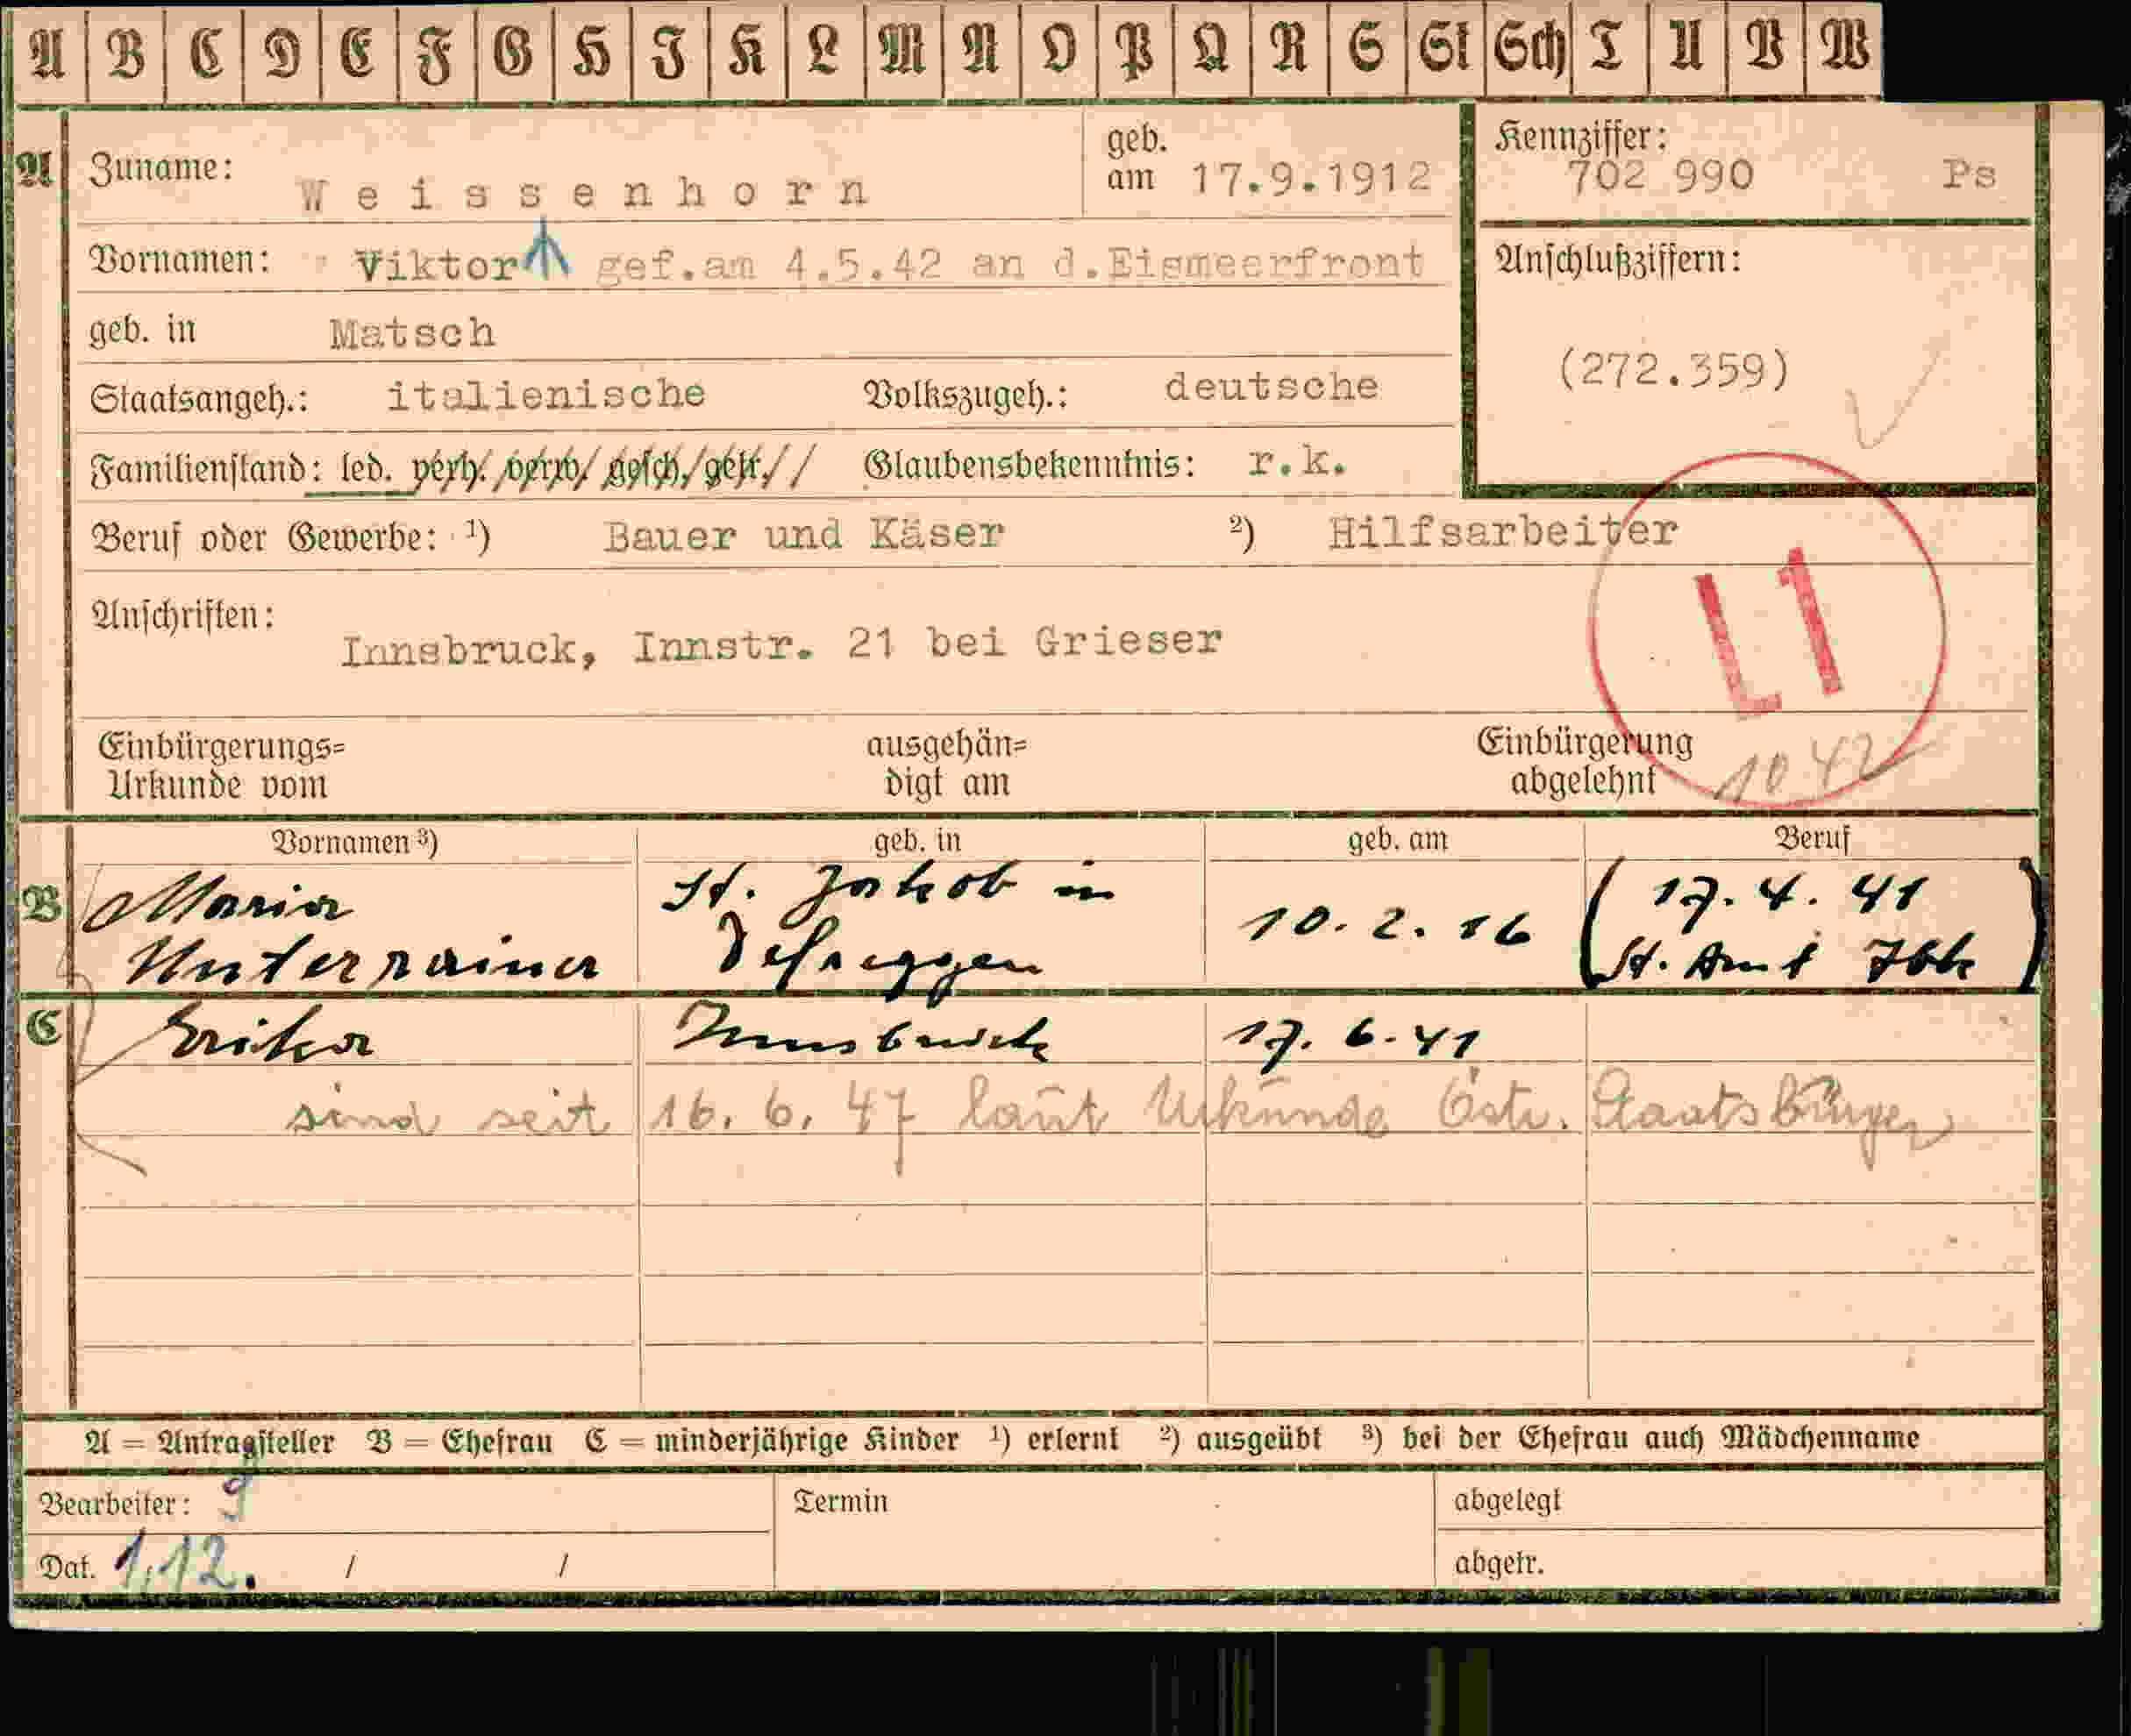 A B C D E F G H I K L M N O P Q R S St Sch T U V W
A Zuname: Weissenhorn geb. am 17.9.1912
Kennziffer: 702 990 Ps
Vornamen: Viktor gef.am 4.5.42 an d.Eismeerfront
Anschlußziffern:
geb. in Matsch
(272.359)
Staatsangeh.: italienische Volkszugeh.: deutsche
Familienstand: led. verh. verw. gesch. getr. Glaubensbekenntnis: r.k.
Beruf oder Gewerbe: ¹) Bauer und Käser ²) Hilfsarbeiter
L1
Anschriften: Innsbruck, Innstr. 21 bei Grieser
Einbürgerungs= ausgehän= Einbürgerung
Urkunde vom digt am abgelehnt 10 42
Vornamen ³) geb. in geb. am Beruf
B Maria St. Jakob in 10. 2. 16 (17. 4. 41
Unterrainer Defreggen St. Amt Ibk)
C Erika Innsbruck 17. 6. 41
sind seit 16. 6. 47 laut Urkunde Östr. Staatsbürger
A = Antragsteller B = Ehefrau C = minderjährige Kinder ¹) erlernt ²) ausgeübt ³) bei der Ehefrau auch Mädchenname
Bearbeiter: Termin abgelegt
Dat. 1.12. / / abgetr.